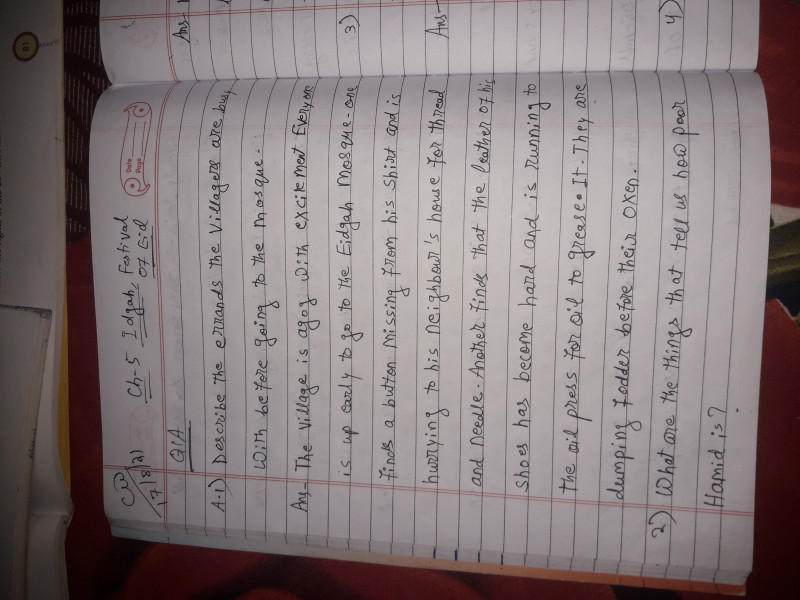 CW
17/8/21
Date
Page
Ch-5 Idgah/ Festival
of Eid
Q/A
A.1) Describe the errands the villagers are busy
with before going to the mosque.
Ans- The village is agog with excitement Everyone
is up early to go to the Eidgah mosque-one
finds a button missing from his shirt and is
hurrying to his neighbour's house for thread
and needle. Another finds that the leather of his
shoes has become hard and is running to
the oil press for oil to grease It. They are
dumping fodder before their oxen.
2) What are the things that tell us how poor
Hamid is?
Ans-
3)
Ans-
4)
81